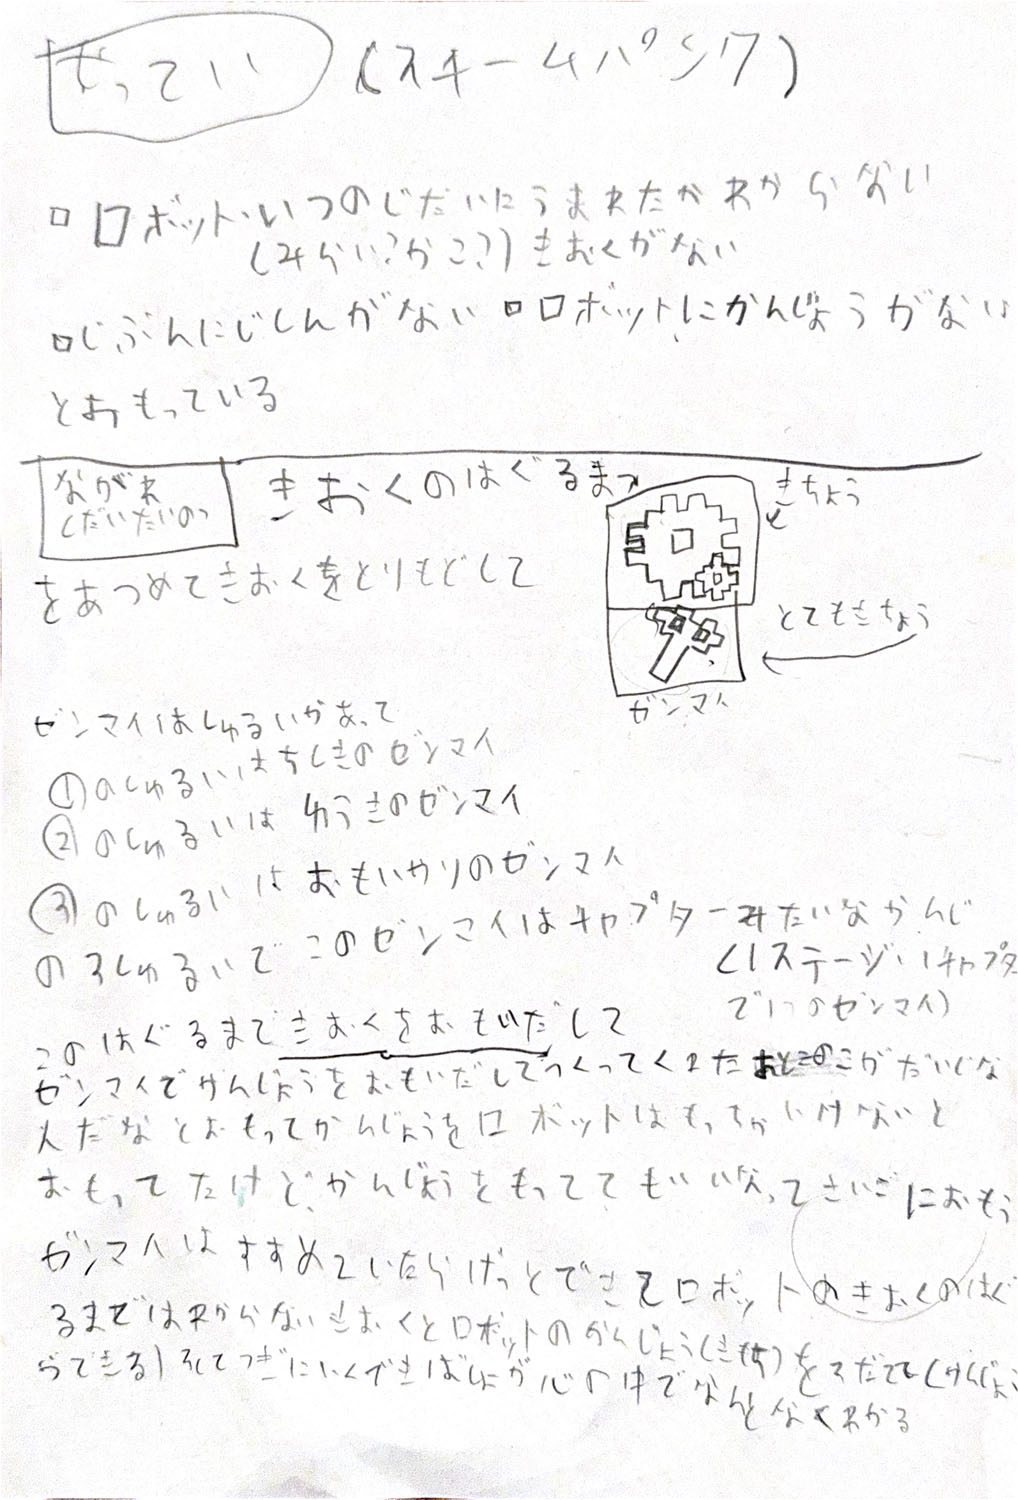 せってい (スチームパンク)
ロボット・いつのじだいにうまれたかわからない
(みらい?かこ?)きおくがない
じぶんにじしんがない ロボットにかんじょうがない
とおもっている
ながれ
(だいたいの)
きおくのはぐるま
きちょう
をあつめてきおくをとりもどして
とてもきちょう
ゼンマイ
ゼンマイはしゅるいがあって
①のしゅるいはちしきのゼンマイ
②のしゅるいはゆうきのゼンマイ
③のしゅるいはおもいやりのゼンマイ
の3しゅるいでこのゼンマイはチャプターみたいなかんじ
(1ステージ、1チャプタ
で1つのゼンマイ)
このはぐるまできおくをおもいだして
ゼンマイでかんじょうをおもいだしてつくってくれたおとこのこがだいじな
人だなとおもってかんじょうをロボットはもっちゃいけないと
おもってたけどかんじょうをもっててもいいなってさいごにおもう
ゼンマイはすすめていたらげっとできてロボットのきおくのはぐ
るまではわからないきおくとロボットのかんじょう(きもち)をそだてて(かんじょう
らできる)そしてつぎにいくべきばしょが心の中でなんとなくわかる